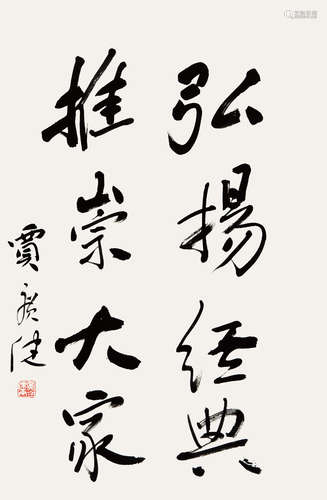 弘揚經典
推崇大家
賈廣健